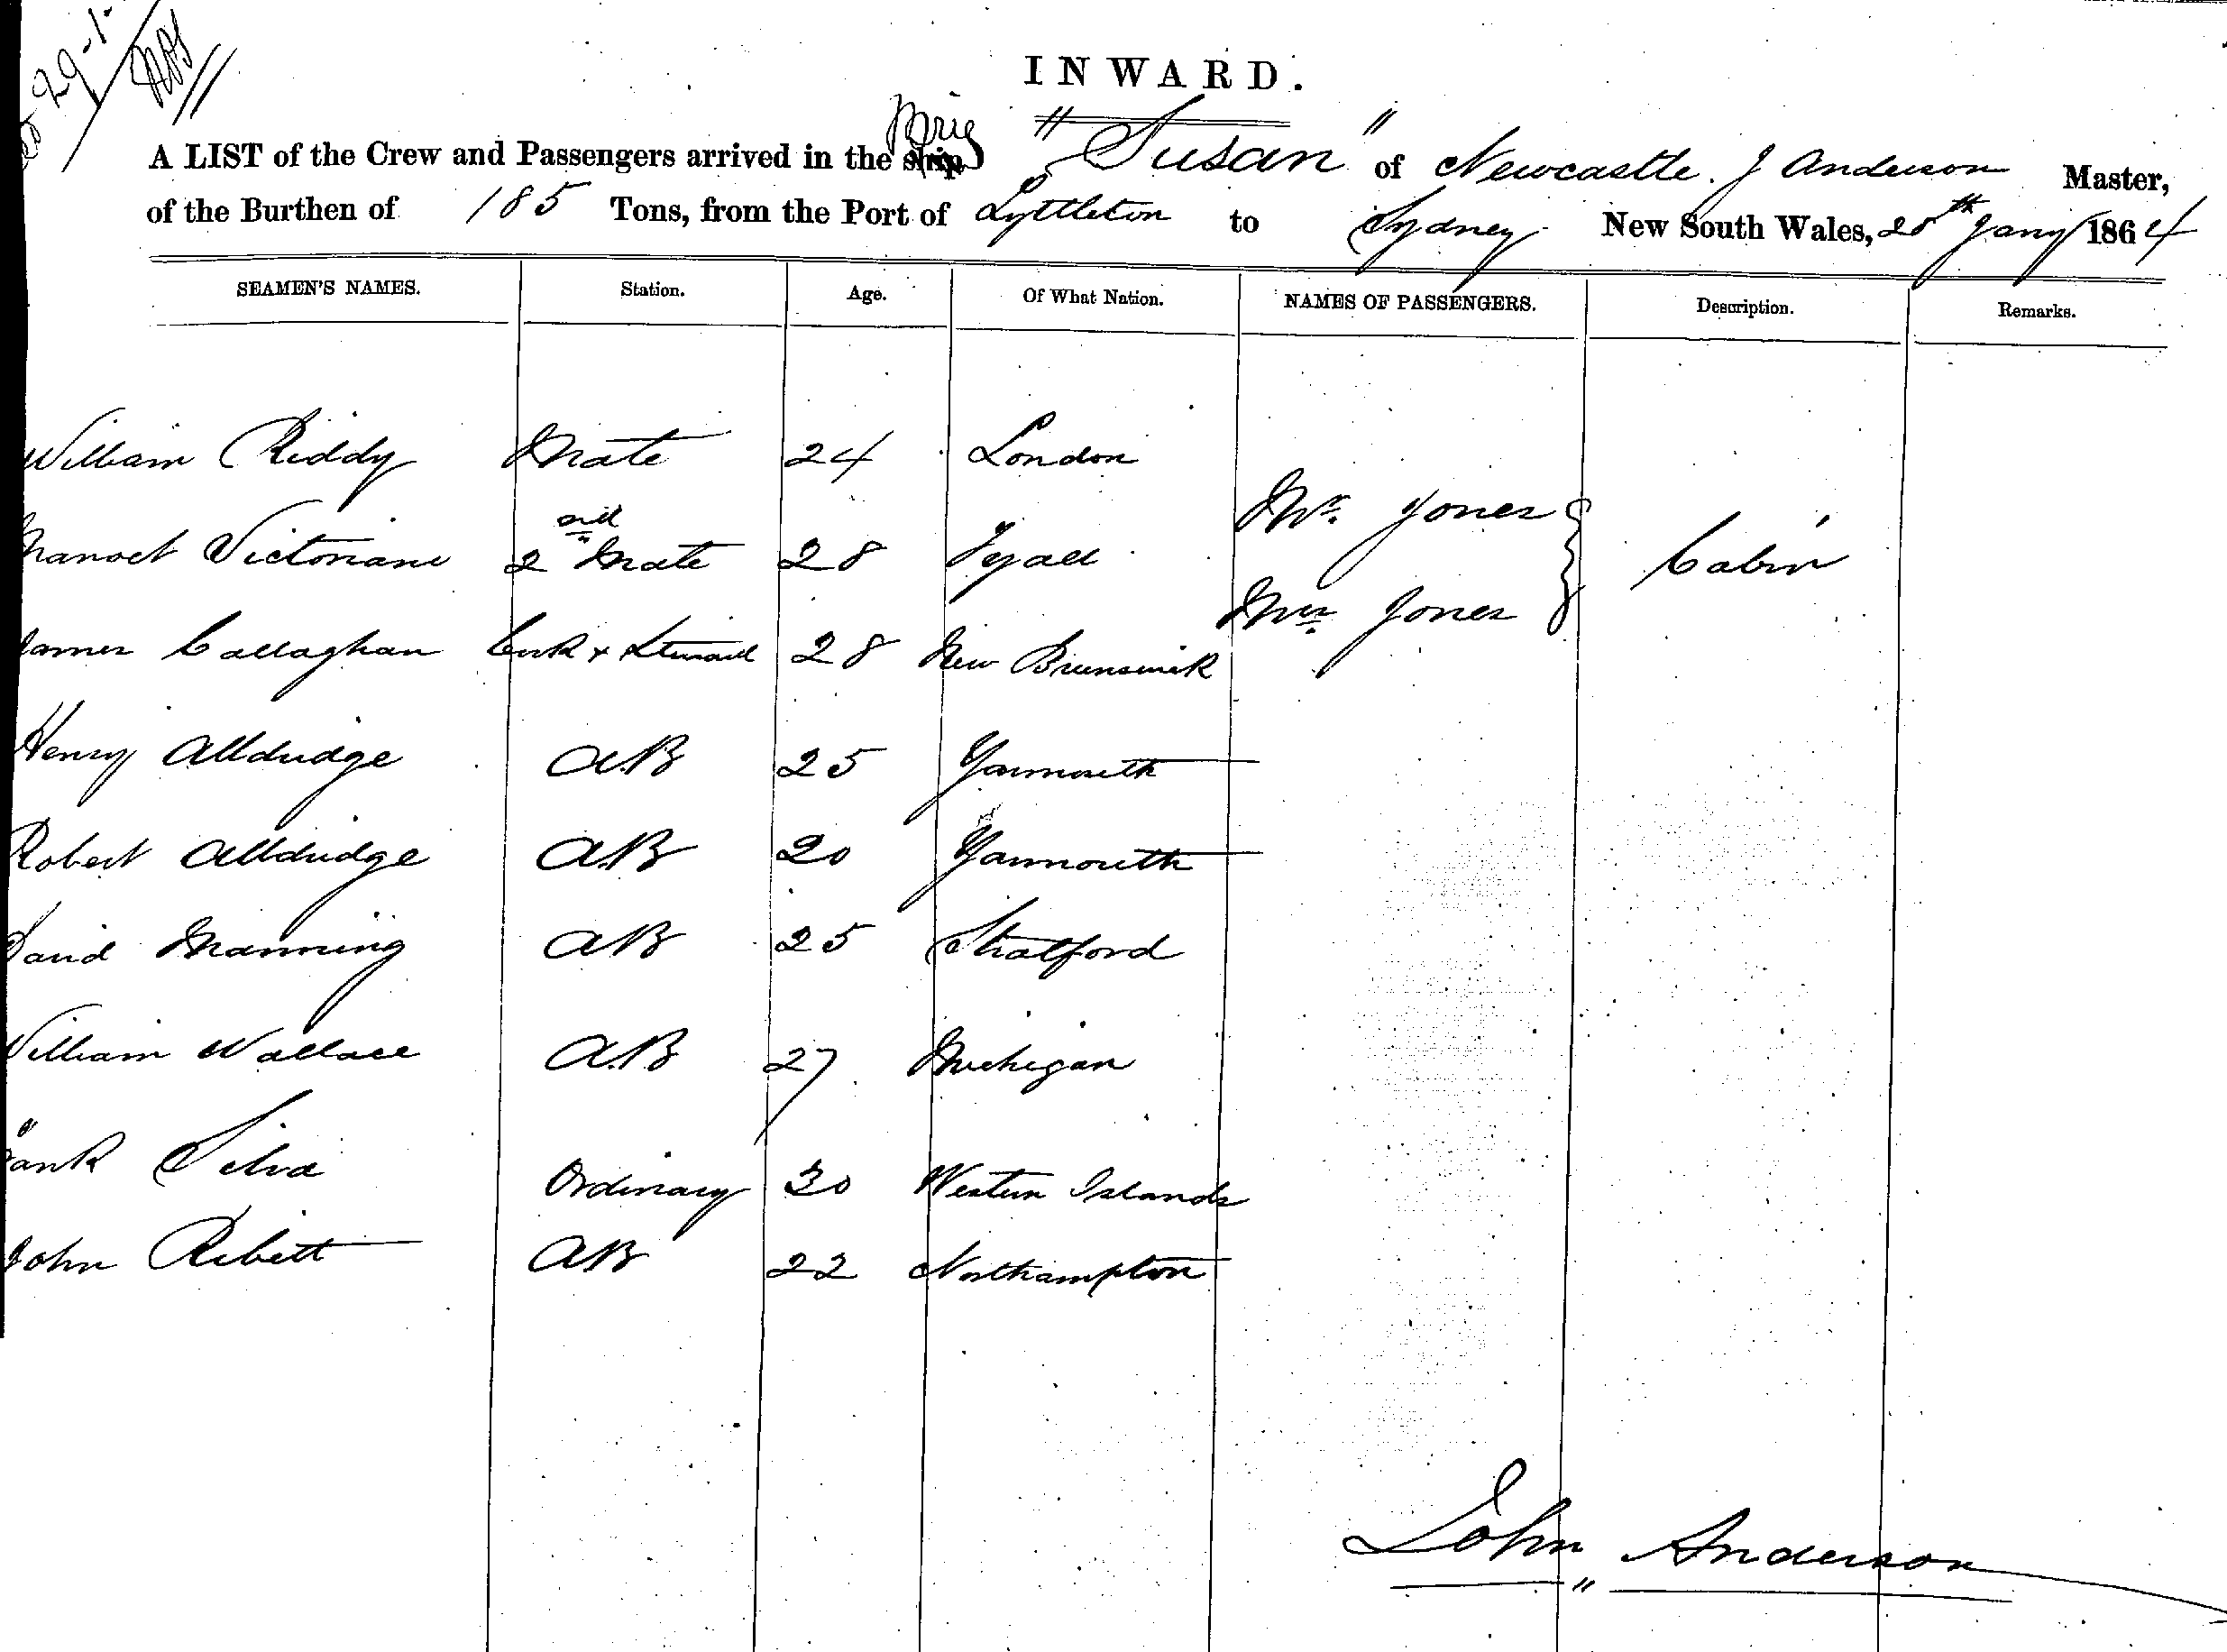 29-1-
INWARD.
A LIST of the Crew and Passengers arrived in the ship Brig "Susan" of Newcastle. J Anderson Master,
of the Burthen of 185 Tons, from the Port of Lyttleton to Sydney New South Wales, 28th Jany 1864
SEAMEN'S NAMES. Station. Age. Of What Nation. NAMES OF PASSENGERS. Description. Remarks.
William Riddy Mate 24 London
Mr. Jones
Manoel Victoriane 2nd Mate 28 Fyall Cabin
Mrs. Jones
James Callaghan Cook & Steward 28 New Brunswick
Henry Alldridge AB 25 Yarmouth
Robert Alldridge AB 20 Yarmouth
David Manning AB 25 Stratford
William Wallace AB 27 Michigan
Frank Silva Ordinary 30 Western Islands
John Ribett AB 22 Northampton
John Anderson